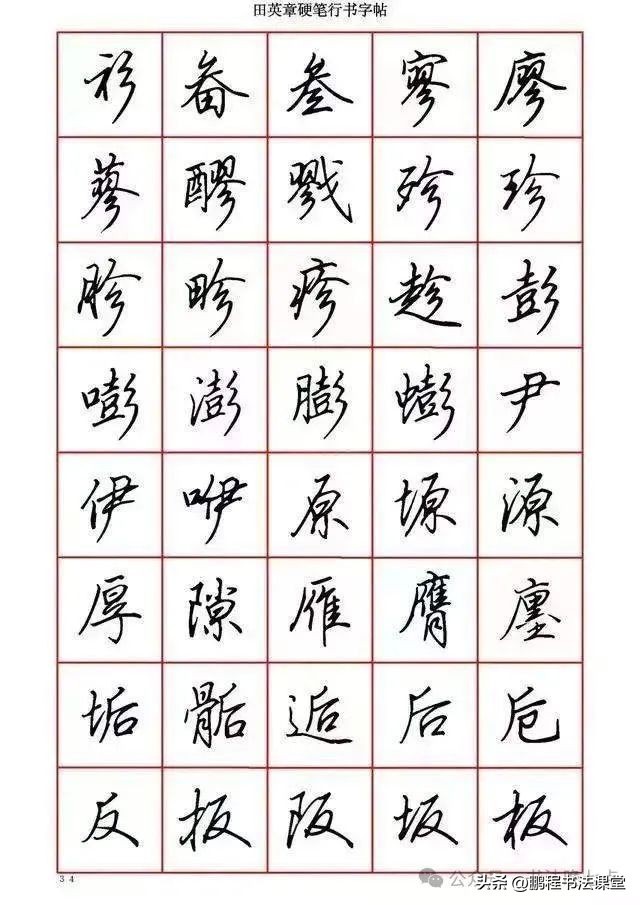 田英章硬笔行书字帖
衫 畚 叁 寥 廖
蓼 醪 戮 殄 珍
胗 畛 疹 趁 彭
嘭 澎 膨 蟛 尹
伊 咿 原 塬 源
厚 隙 雁 膺 廛
垢 骺 逅 后 卮
反 扳 阪 坂 板
34
头条 @鹏程书法课堂